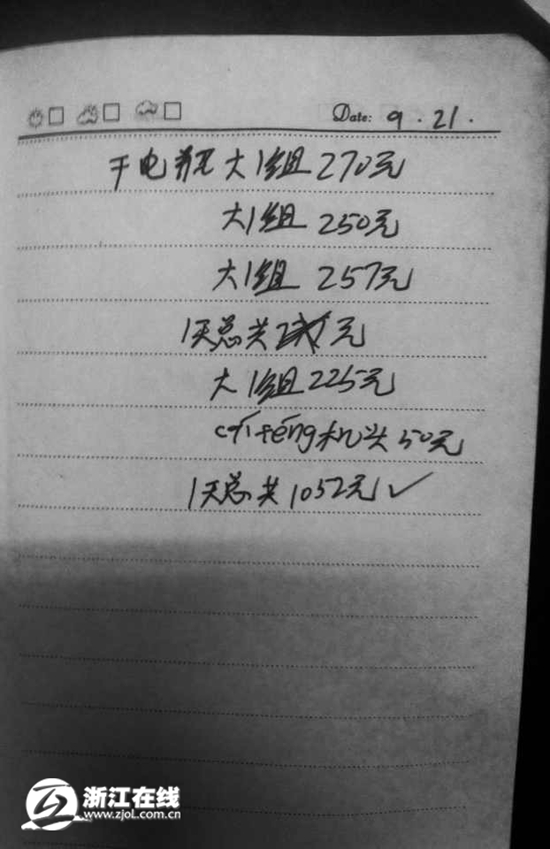 Date: 9.21.
干电瓶大1组270元
大1组250元
大1组257元
1天总共元
大1组225元
cǎifēng机头50元
1天总共1052元✓
浙江在线
www.zjol.com.cn